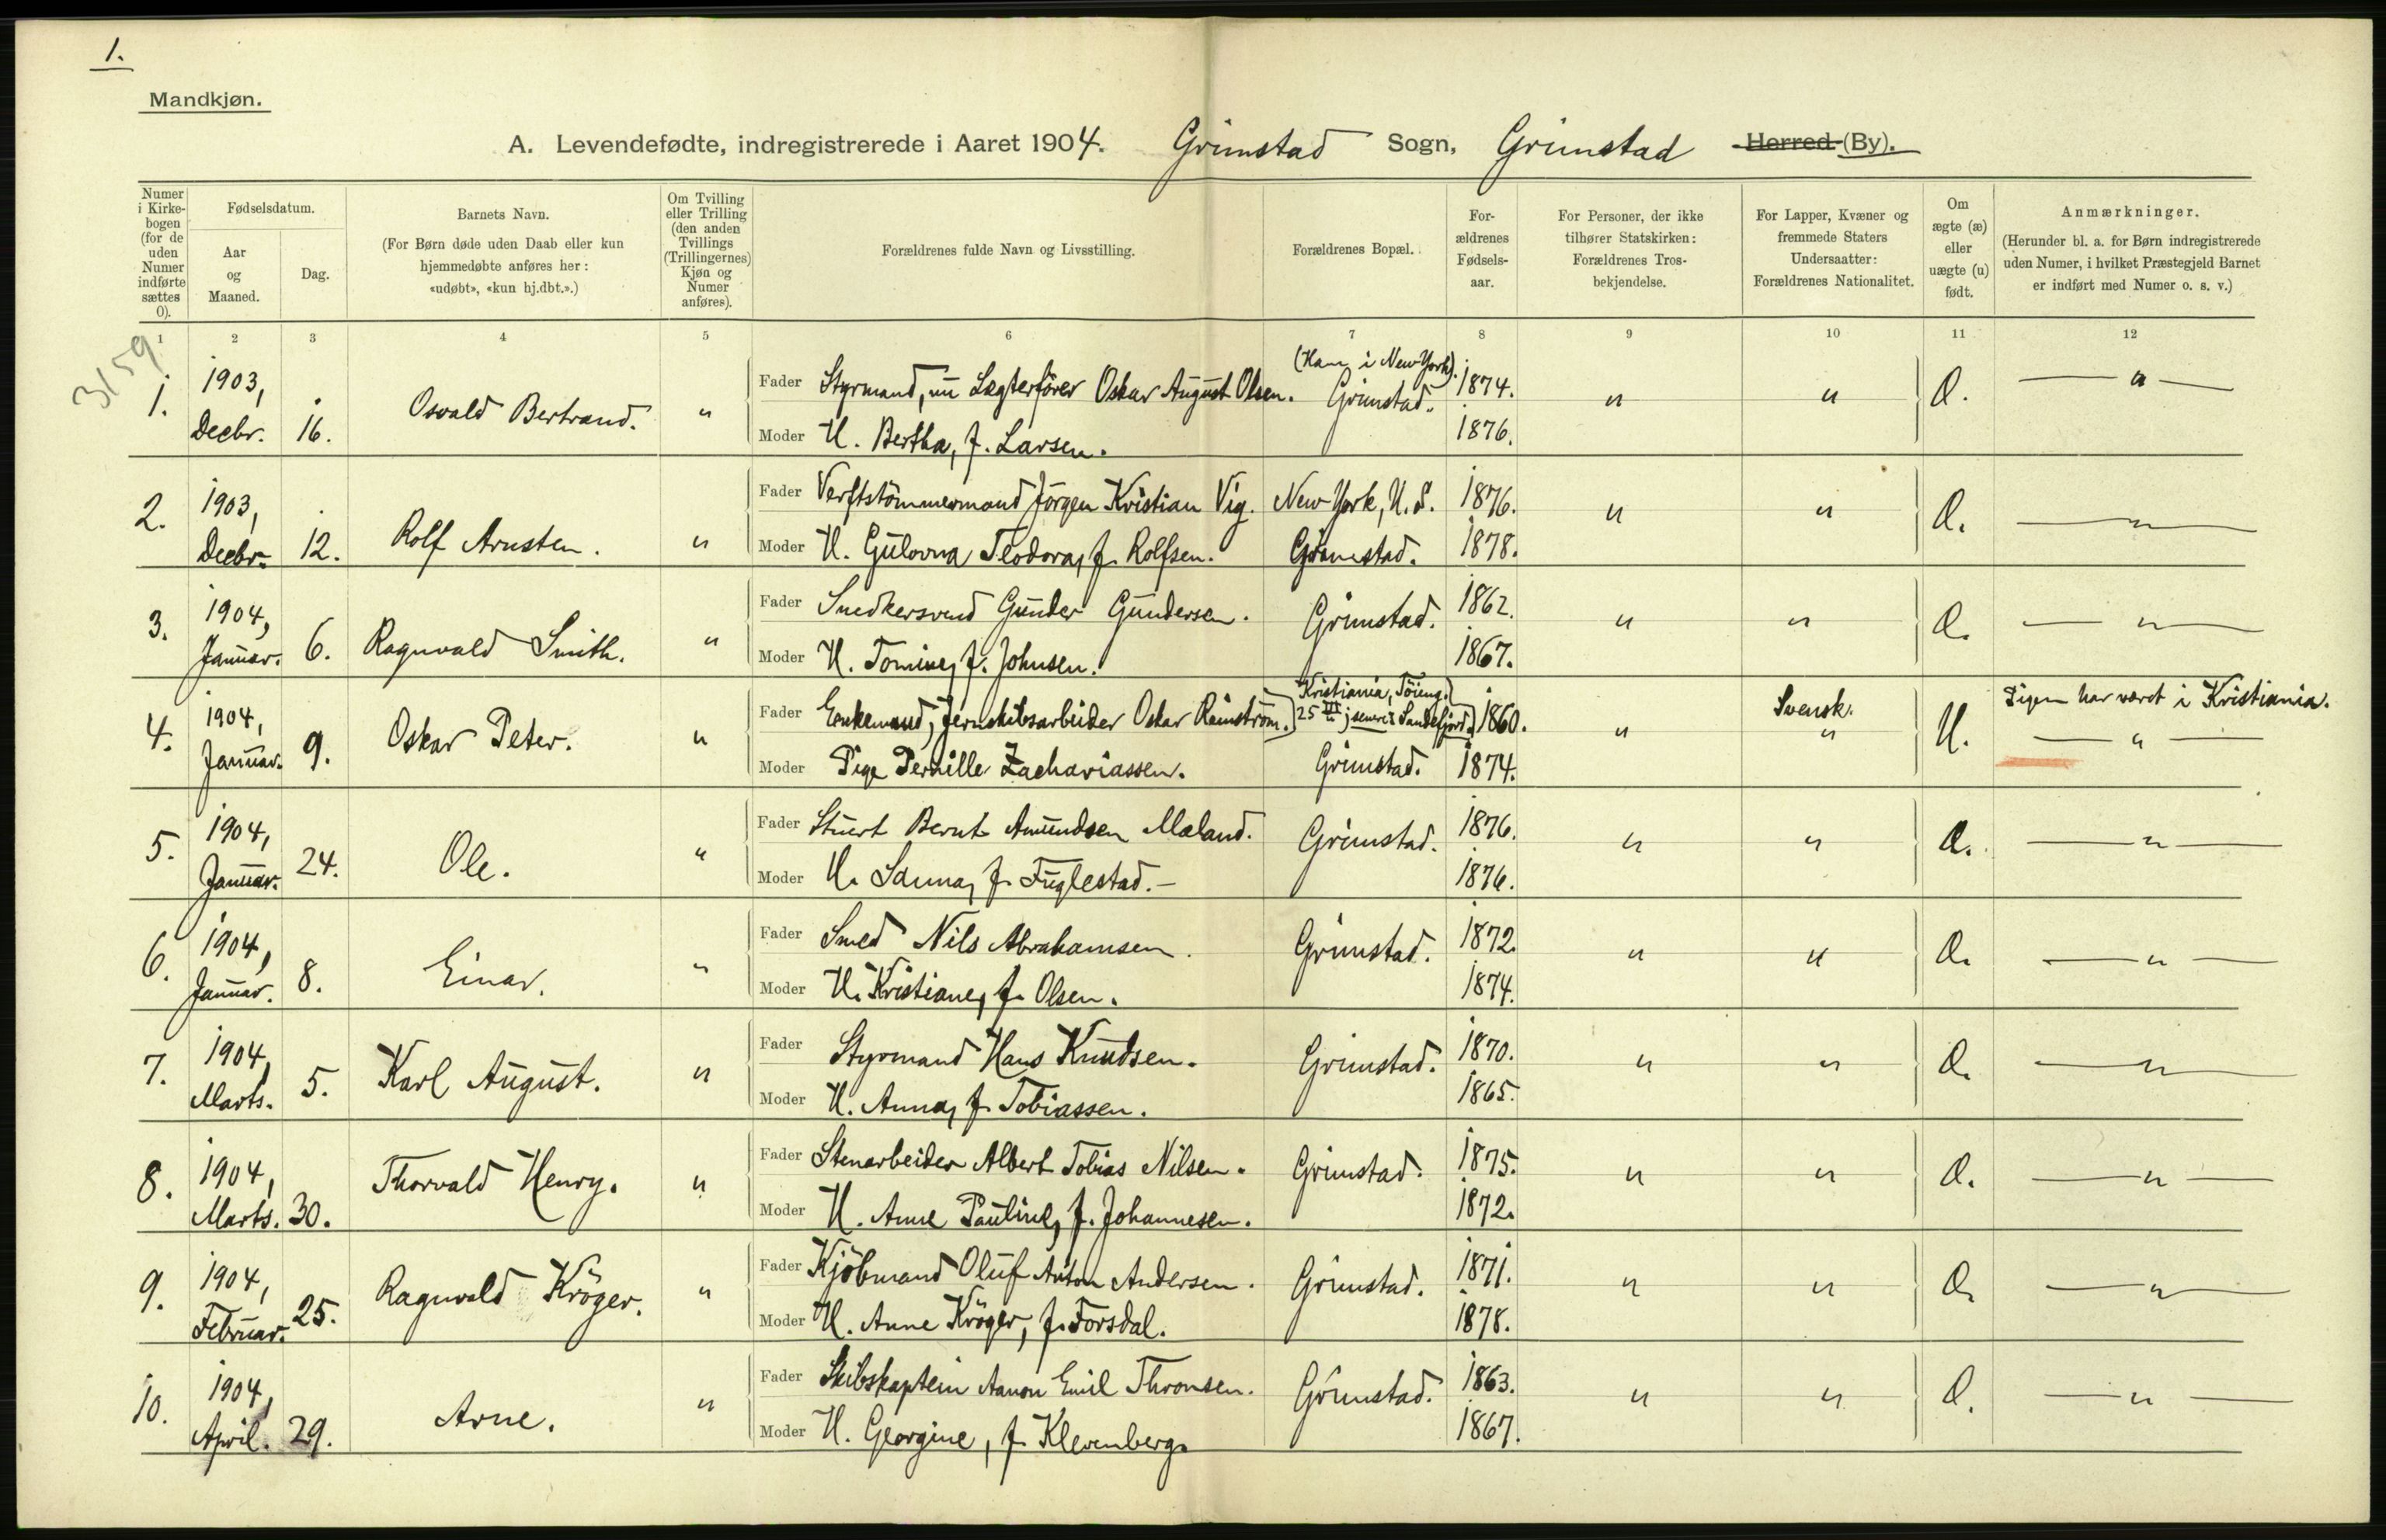 1.
Mandkjøn.
A. Levendefødte, indregistrerede i Aaret 1904. Grimstad Sogn, Grimstad Herred (By).
Numer i Kirkebogen (for de uden Numer indførte sættes 0).
Fødselsdatum.
Aar og Maaned.
Dag.
Barnets Navn.
(For Børn døde uden Daab eller kun hjemmedøbte anføres her: «udøbt», «kun hj.dbt.».)
Om Tvilling eller Trilling (den anden Tvillings (Trillingernes) Kjøn og Numer anføres).
Forældrenes fulde Navn og Livsstilling.
Forældrenes Bopæl.
Forældrenes Fødselsaar.
For Personer, der ikke tilhører Statskirken: Forældrenes Trosbekjendelse.
For Lapper, Kvæner og fremmede Staters Undersaatter: Forældrenes Nationalitet.
Om ægte (æ) eller uægte (u) født.
Anmærkninger.
(Herunder bl. a. for Børn indregistrerede uden Numer, i hvilket Præstegjeld Barnet er indført med Numer o. s. v.)
1 2 3 4 5 6 7 8 9 10 11 12
3159
1. 1903, Decbr. 16. Osvald Bertrand. " Fader Styrmand, nu Lægterfører Oskar August Olsen. (Han i New York). Grimstad. 1874. " " Æ. — " —
Moder H. Bertha, f. Larsen. 1876.
2. 1903, Decbr. 12. Rolf Arnsten. " Fader Verftstömmermand Jörgen Kristian Vig. New York, U. S. 1876. " " Æ. — " —
Moder H. Gulovna Teodora, f. Rolfsen. Grimstad. 1878.
3. 1904, Januar. 6. Ragnvald Smith. " Fader Snedkersvend Gunder Gundersen. Grimstad. 1862. " " Æ. — " —
Moder H. Tomine, f. Johnsen. 1867.
4. 1904, Januar. 9. Oskar Peter. " Fader Enkemand, Jernskibsarbeider Oskar Reinström. Kristiania, Töieng. 25 senere Sandefjord. 1860. " Svensk. " U. Pigen har været i Kristiania. — " —
Moder Pige Pernille Zachariassen. Grimstad. 1874.
5. 1904, Januar. 24. Ole. " Fader Stuert Bernt Amundsen Mæland. Grimstad. 1876. " " Æ. — " —
Moder H. Sanna, f. Fuglestad. — 1876.
6. 1904, Januar. 8. Einar. " Fader Smed Nils Abrahamsen. Grimstad. 1872. " " Æ. — " —
Moder H. Kristiane, f. Olsen. 1874.
7. 1904, Marts. 5. Karl August. " Fader Styrmand Hans Knudsen. Grimstad. 1870. " " Æ. — " —
Moder H. Anna, f. Tobiassen. 1865.
8. 1904, Marts. 30. Thorvald Henry. " Fader Stenarbeider Albert Tobias Nilsen. Grimstad. 1875. " " Æ. — " —
Moder H. Anne Pauline, f. Johannesen. 1872.
9. 1904, Februar. 25. Ragnvald Kröger. " Fader Kjöbmand Oluf Anton Andersen. Grimstad. 1871. " " Æ. — " —
Moder H. Anne Kröger, f. Forsdal. 1878.
10. 1904, April. 29. Arne. " Fader Skibskaptein Aanon Emil Thronsen. Grimstad. 1863. " " Æ. — " —
Moder H. Georgine, f. Klevenberg. 1867.